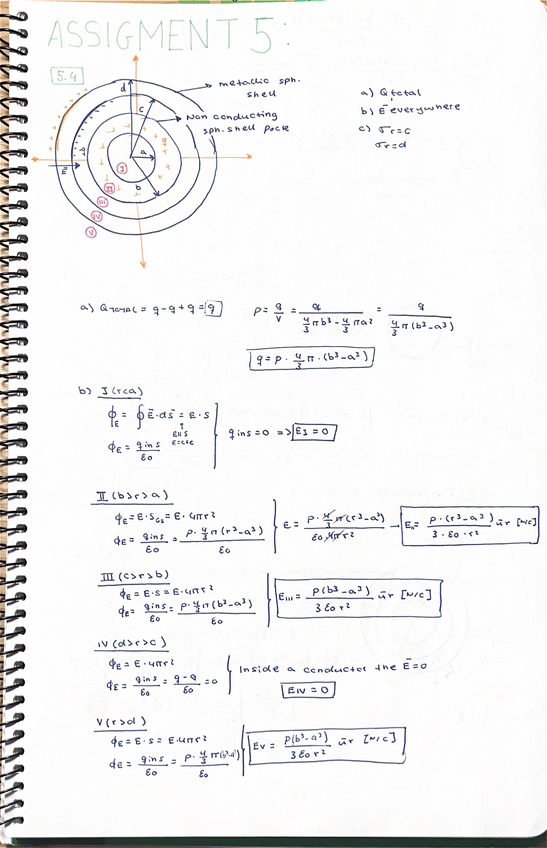 ASSIGMENT 5:
5.4
metallic sph. shell
Non conducting sph. shell
d
c
a
b
I
II
III
IV
V
a) Qtotal
b) E everywhere
c) σr=c
σr=d
a) Qtotal = q-q+q = q
ρ = q/V = q/(4/3 πb³ - 4/3 πa³) = q/(4/3 π(b³-a³))
q = ρ · 4/3 π · (b³-a³)
b) I (r<a)
ϕE = ∮ E⃗·ds⃗ = E·S
E∥S
E=cte
ϕE = qins/ε0
qins=0 => EI = 0
II (b>r>a)
ϕE = E·SGs = E·4πr²
ϕE = qins/ε0 = ρ·4/3 π(r³-a³)/ε0
E = ρ·4/3 π(r³-a³)/(ε0·4πr²) → EII = ρ·(r³-a³)/(3·ε0·r²) ūr [N/C]
III (c>r>b)
ϕE = E·S = E·4πr²
ϕE = qins/ε0 = ρ·4/3 π(b³-a³)/ε0
EIII = ρ(b³-a³)/(3ε0r²) ūr [N/C]
IV (d>r>c)
ϕE = E·4πr²
ϕE = qins/ε0 = (q-q)/ε0 = 0
Inside a conductor the E⃗=0
EIV = 0
V (r>d)
ϕE = E·S = E·4πr²
ϕE = qins/ε0 = ρ·4/3 π(b³-a³)/ε0
EV = ρ(b³-a³)/(3ε0r²) ūr [N/C]